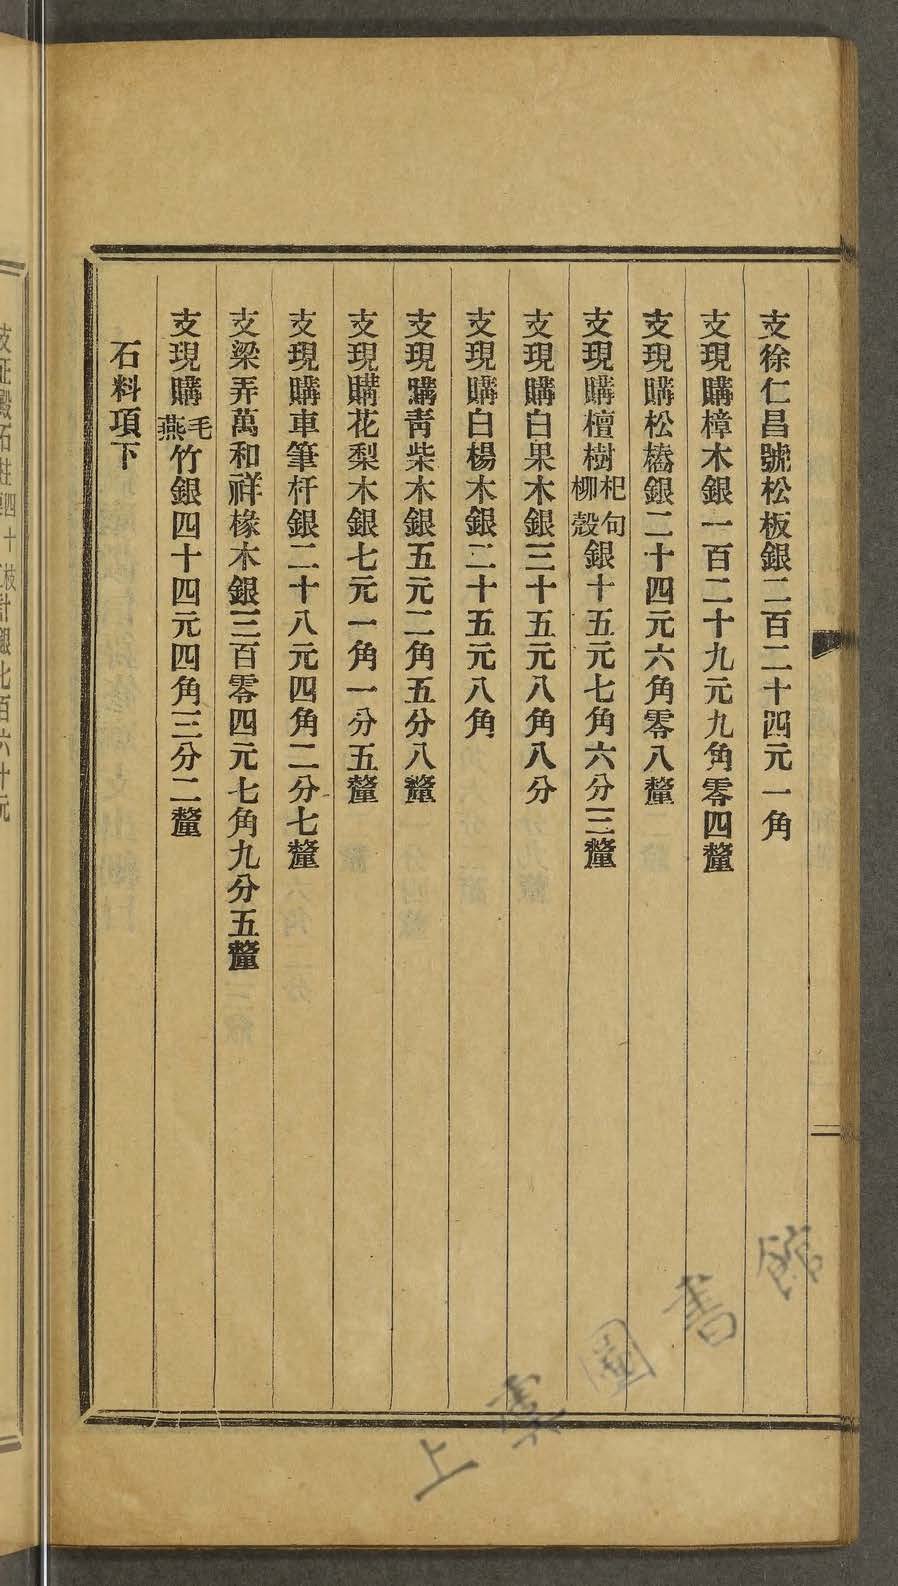 支徐仁昌號松板銀二百二十四元一角
支現購樟木銀一百二十九元九角零四釐
支現購松樁銀二十四元六角零八釐
支現購檀樹杞柳句殼銀十五元七角六分三釐
支現購白果木銀三十五元八角八分
支現購白楊木銀二十五元八角
支現購青柴木銀五元二角五分八釐
支現購花梨木銀七元一角一分五釐
支現購車筆杆銀二十八元四角二分七釐
支梁弄萬和祥椽木銀三百零四元七角九分五釐
支現購毛燕竹銀四十四元四角三分二釐
石料項下
上虞圖書館